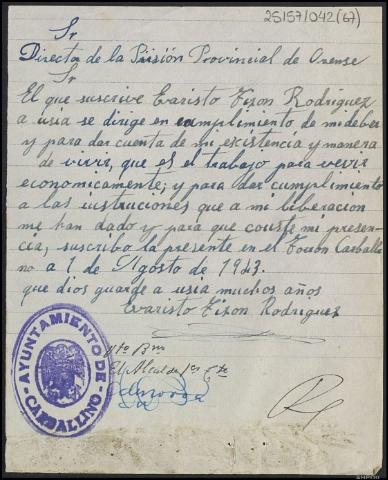 25157/042(67)
Sr
Director de la Prisión Provincial de Orense
Sr
El que suscrive Evaristo Tizon Rodriguez
a usia se dirige en cumplimiento de mi deber
y para dar cuenta de mi existencia y manera
de vivir, que es el trabajo para vevir
economicamente; y para dar cumplimiento
a las instruciones que a mi liberacion
me han dado y para que conste mi presen-
cia, suscribo la presente en el Carballi
no a 1 de Agosto de 1943.
que dios guarge a usia muchos años
Evaristo Tizon Rodriguez
Vto Bno
El Alcalde
AYUNTAMIENTO DE
CARBALLINO